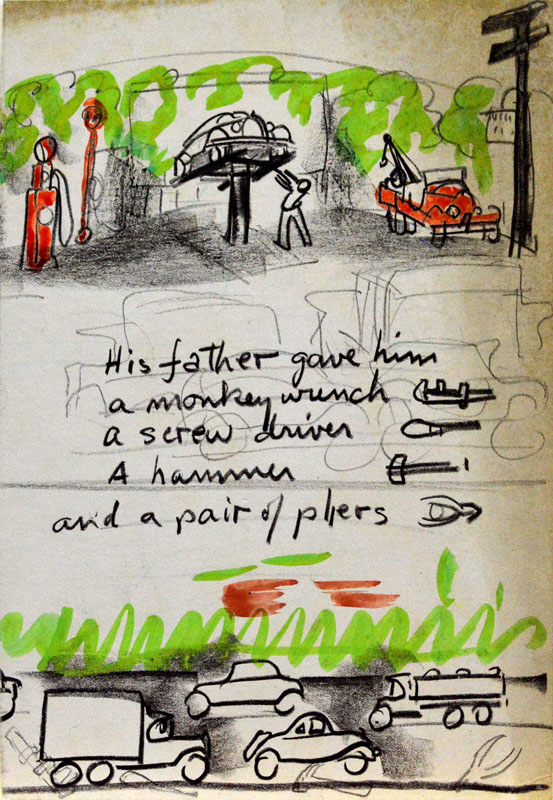 His father gave him
a monkey wrench
a screw driver
A hammer
and a pair of pliers